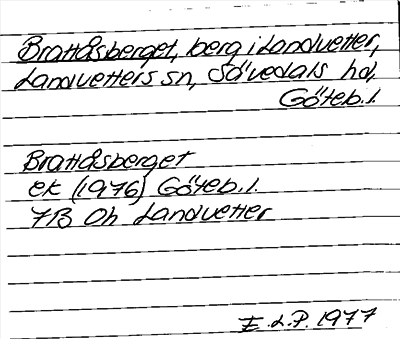 Brattåsberget, berg i Landvetter,
Landvetters sn, Sävedals hd,
Göteb. l.
Brattåsberget
ek (1976) Göteb. l.
7B 0h Landvetter
E. L. P. 1977